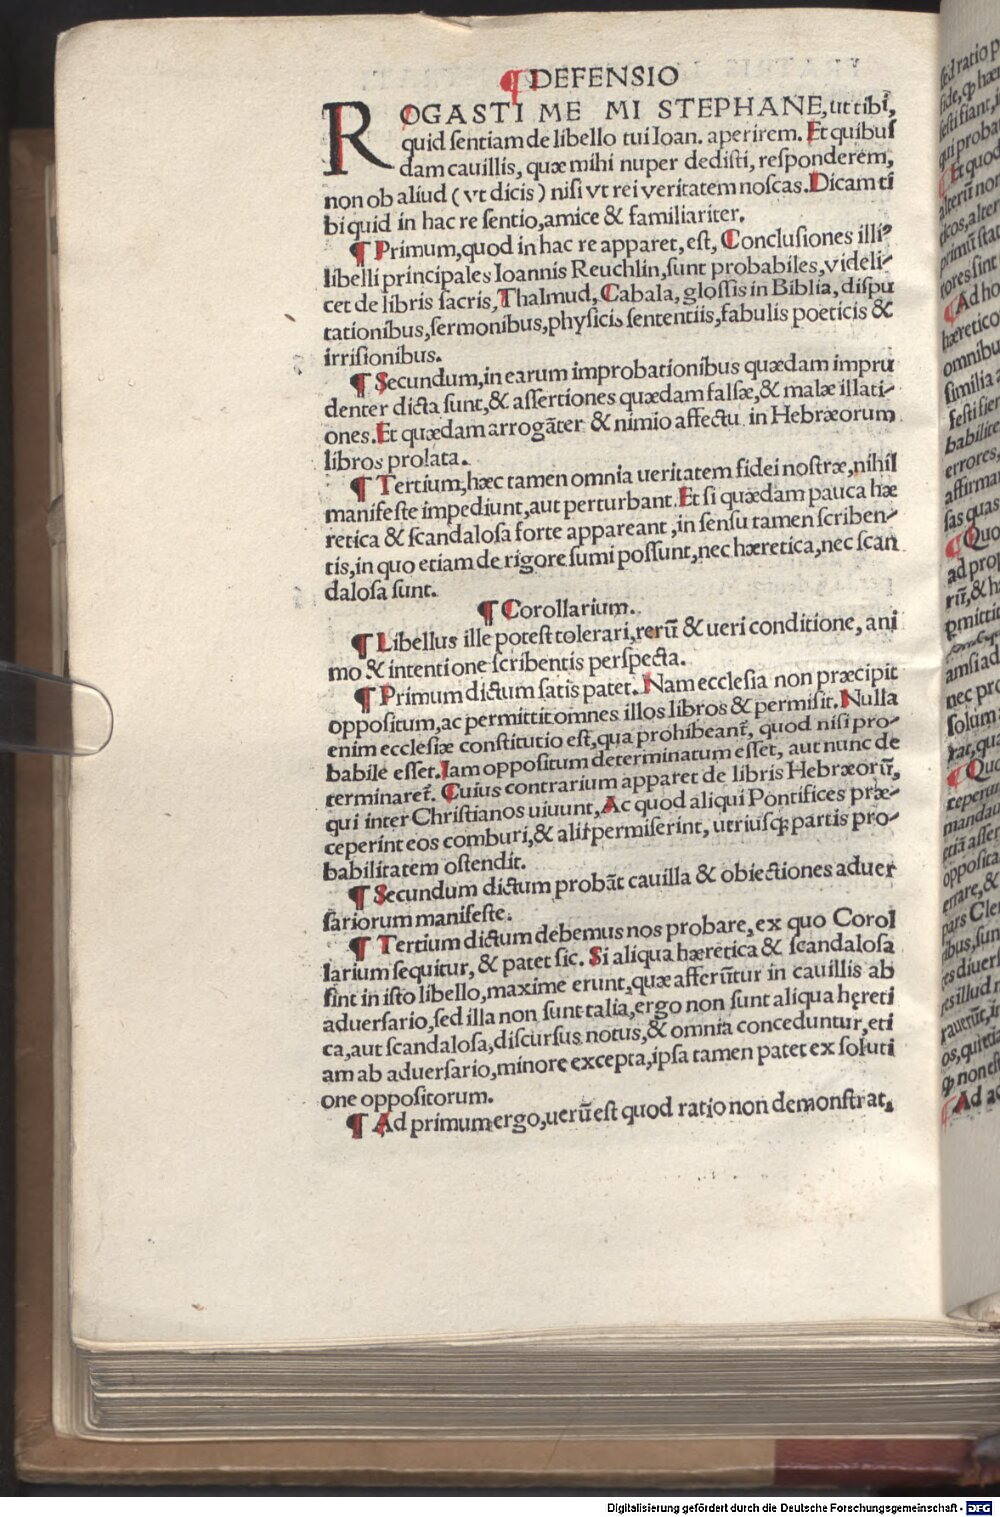 ¶ DEFENSIO
ROGASTI ME MI STEPHANE, ut tibi,
quid sentiam de libello tui Ioan. aperirem. Et quibus
dam cauillis, quæ mihi nuper dedisti, responderem,
non ob aliud ( vt dicis ) nisi vt rei veritatem noscas. Dicam ti
bi quid in hac re sentio, amice & familiariter.
¶ Primum, quod in hac re apparet, est, Conclusiones illiꝰ
libelli principales Ioannis Reuchlin, sunt probabiles, videli-
cet de libris sacris, Thalmud, Cabala, glossis in Biblia, dispu
tationibus, sermonibus, physicis sententiis, fabulis poeticis &
irrisionibus.
¶ Secundum, in earum improbationibus quædam impru
denter dicta sunt, & assertiones quædam falsæ, & malæ illati-
ones. Et quædam arrogãter & nimio affectu in Hebræorum
libros prolata.
¶ Tertium, hæc tamen omnia ueritatem fidei nostræ, nihil
manifeste impediunt, aut perturbant. Et si quædam pauca hæ
retica & scandalosa forte appareant, in sensu tamen scriben-
tis, in quo etiam de rigore sumi possunt, nec hæretica, nec scan
dalosa sunt.
¶ Corollarium.
¶ Libellus ille potest tolerari, rerũ & ueri conditione, ani
mo & intentione scribentis perspecta.
¶ Primum dictum satis patet. Nam ecclesia non præcipit
oppositum, ac permittit omnes illos libros & permisit. Nulla
enim ecclesiæ constitutio est, qua prohibeant᷑, quod nisi pro-
babile esset. Iam oppositum determinatum esset, aut nunc de
terminaret᷑. Cuius contrarium apparet de libris Hebræorũ,
qui inter Christianos uiuunt, Ac quod aliqui Pontifices præ-
ceperint eos comburi, & alii permiserint, utriusqꝫ partis pro-
babilitatem ostendit.
¶ Secundum dictum probãt cauilla & obiectiones aduer
sariorum manifeste.
¶ Tertium dictum debemus nos probare, ex quo Corol
larium sequitur, & patet sic. Si aliqua hæretica & scandalosa
sint in isto libello, maxime erunt, quæ afferũtur in cauillis ab
aduersario, sed illa non sunt talia, ergo non sunt aliqua hęreti
ca, aut scandalosa, discursus notus, & omnia conceduntur, eti
am ab aduersario, minore excepta, ipsa tamen patet ex soluti
one oppositorum.
¶ Ad primum ergo, uerũ est quod ratio non demonstrat,
Digitalisierung gefördert durch die Deutsche Forschungsgemeinschaft - DFG